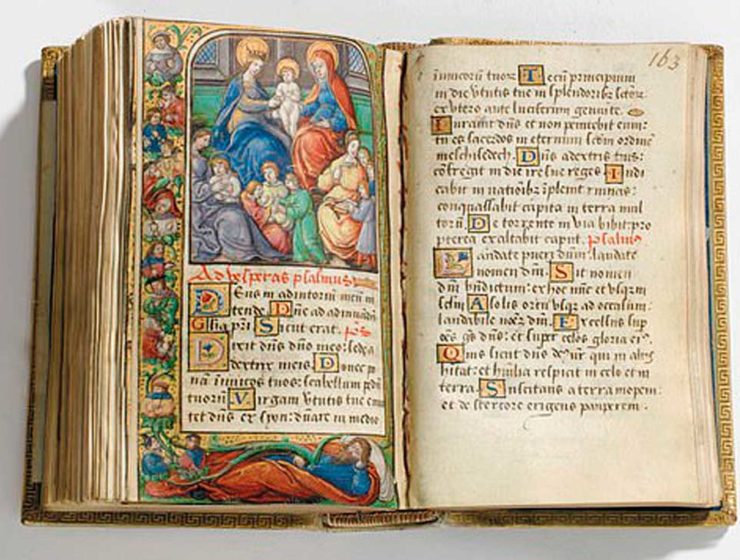 Ad vesperas psalmus
Deus in adiutoriũ meũ in
tende. Dñe ad adiuuandũ
Glia pri Sicut erat. ps
Dixit dñs dño meo: sede a
dextris meis. Donec po
na inimicos tuos: scabellum pedũ
tuorũ. Virgam v̾tutis tue emi
tet dñs ex syon: dñare in medio
163
inimicorũ tuor̃ Tecũ principium
in die v̾tutis tue in splendorib̾ sctor̃:
ex vtero ante luciferum genui te.
Iurauit dñs et non penitebit eum:
tu es sacerdos in eternum scdm ordinẽ
melchisedech. Dñs a dextris tuis:
cõfregit in die ire sue reges. Iudi
cabit in nationib̾ ĩplebit ruinas:
conquassabit capita in terra mul
torũ. De torrente in via bibit: pro
pterea exaltabit caput. psalmus
Laudate pueri dñm: laudate
nomen dñi. Sit nomen
dñi bñdictum: ex hoc nũc et vsq̃ in
sclm. A solis ortu vsq̃ ad occasum:
laudabile nom̃ dñi. Excelsus sup̃
ões g̃s dñs: et super celos gloria ei9.
Quis sicut dñs de9 nr̃ qui in altis
hĩtat: et hũilia respicit in celo et in
terra. Suscitans a terra inopem:
et de stercore erigens pauperem.